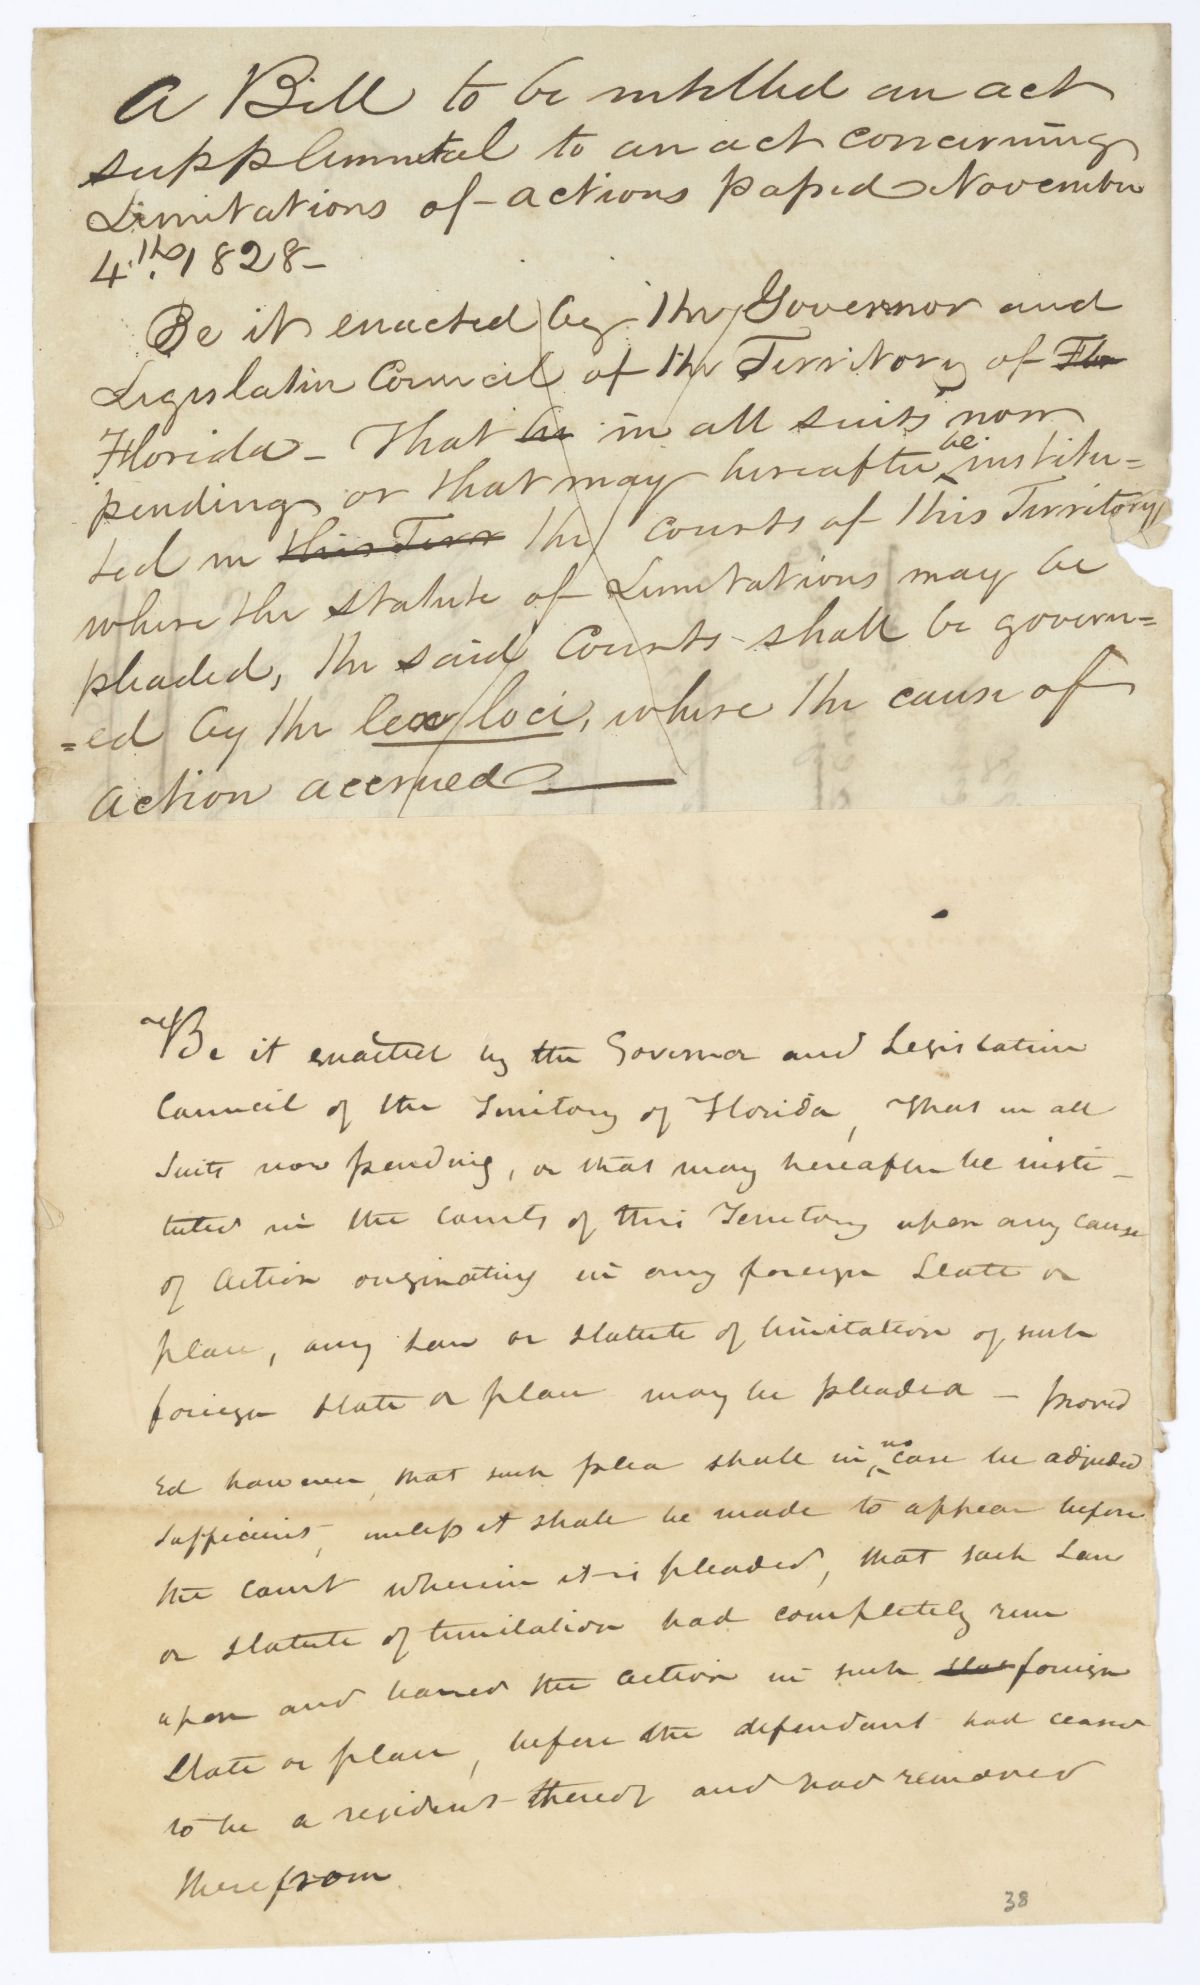 A Bill to be intitled an act
supplimental to an act concerning
Limitations of actions passed November
4th. 1828 –
Be it enacted by the Governor and
Legislative Council of the Territory of Flo
Florida – That in in all suits now
pending or that may hereafter be institu=
ted in this Terr the courts of this Territory
where the statute of Limitations may be
pleaded, the said Courts shall be govern=
=ed by the lex loci, where the cause of
action accrued
Be it enacted by the Governor and Legislative
Council of the Territory of Florida, That in all
Suits now pending, or that may hereafter be insti-
tuted in the courts of this Territory upon any cause
of action originating in any foreign State or
place, any Law or statute of limitation of such
foreign state or place may be pleaded – provid
Ed however, that such plea shall in no case be adjuded
Sufficient, unless it shall be made to appear before
the court wherein it is pleaded, that such Law
or statute of limitation had completely run
upon and barred the action in such stat foreign
State or place, before the defendant had ceased
to be a resident thereof and had removed
therefrom.
38